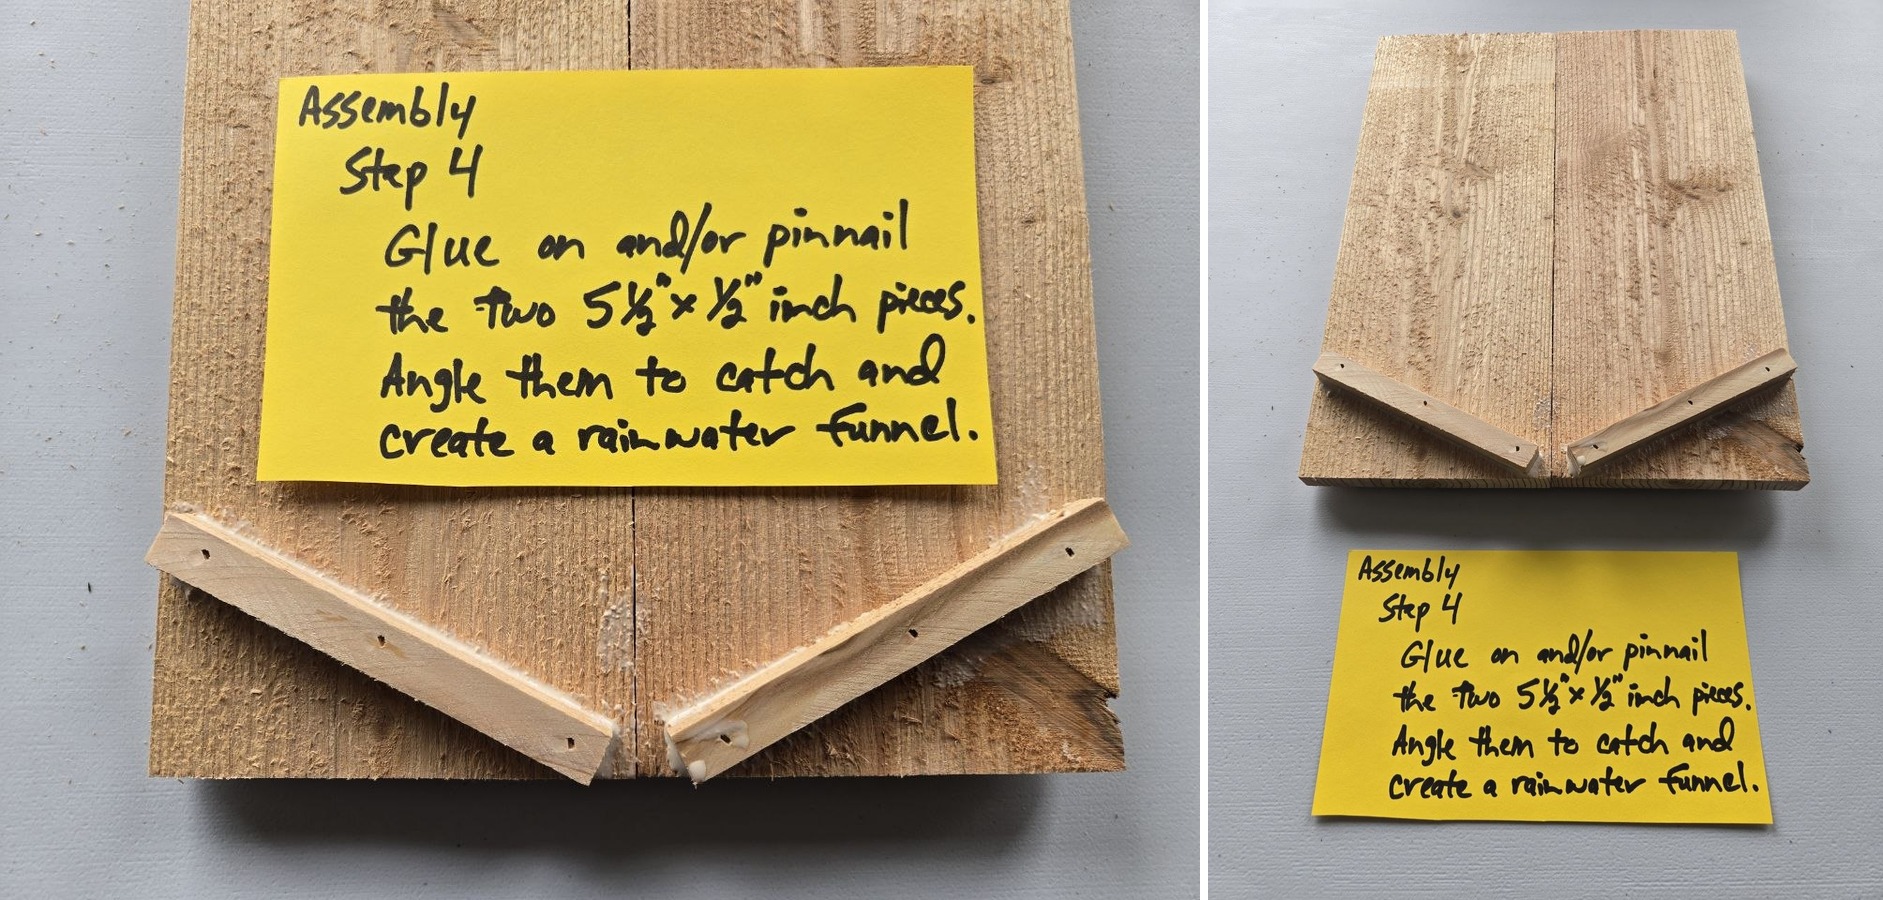 Assembly
Step 4
Glue on and/or pinnail
the two 5 1/2" x 1/2" inch pieces.
Angle them to catch and
create a rainwater funnel.
Assembly
Step 4
Glue on and/or pinnail
the two 5 1/2" x 1/2" inch pieces.
Angle them to catch and
create a rainwater funnel.